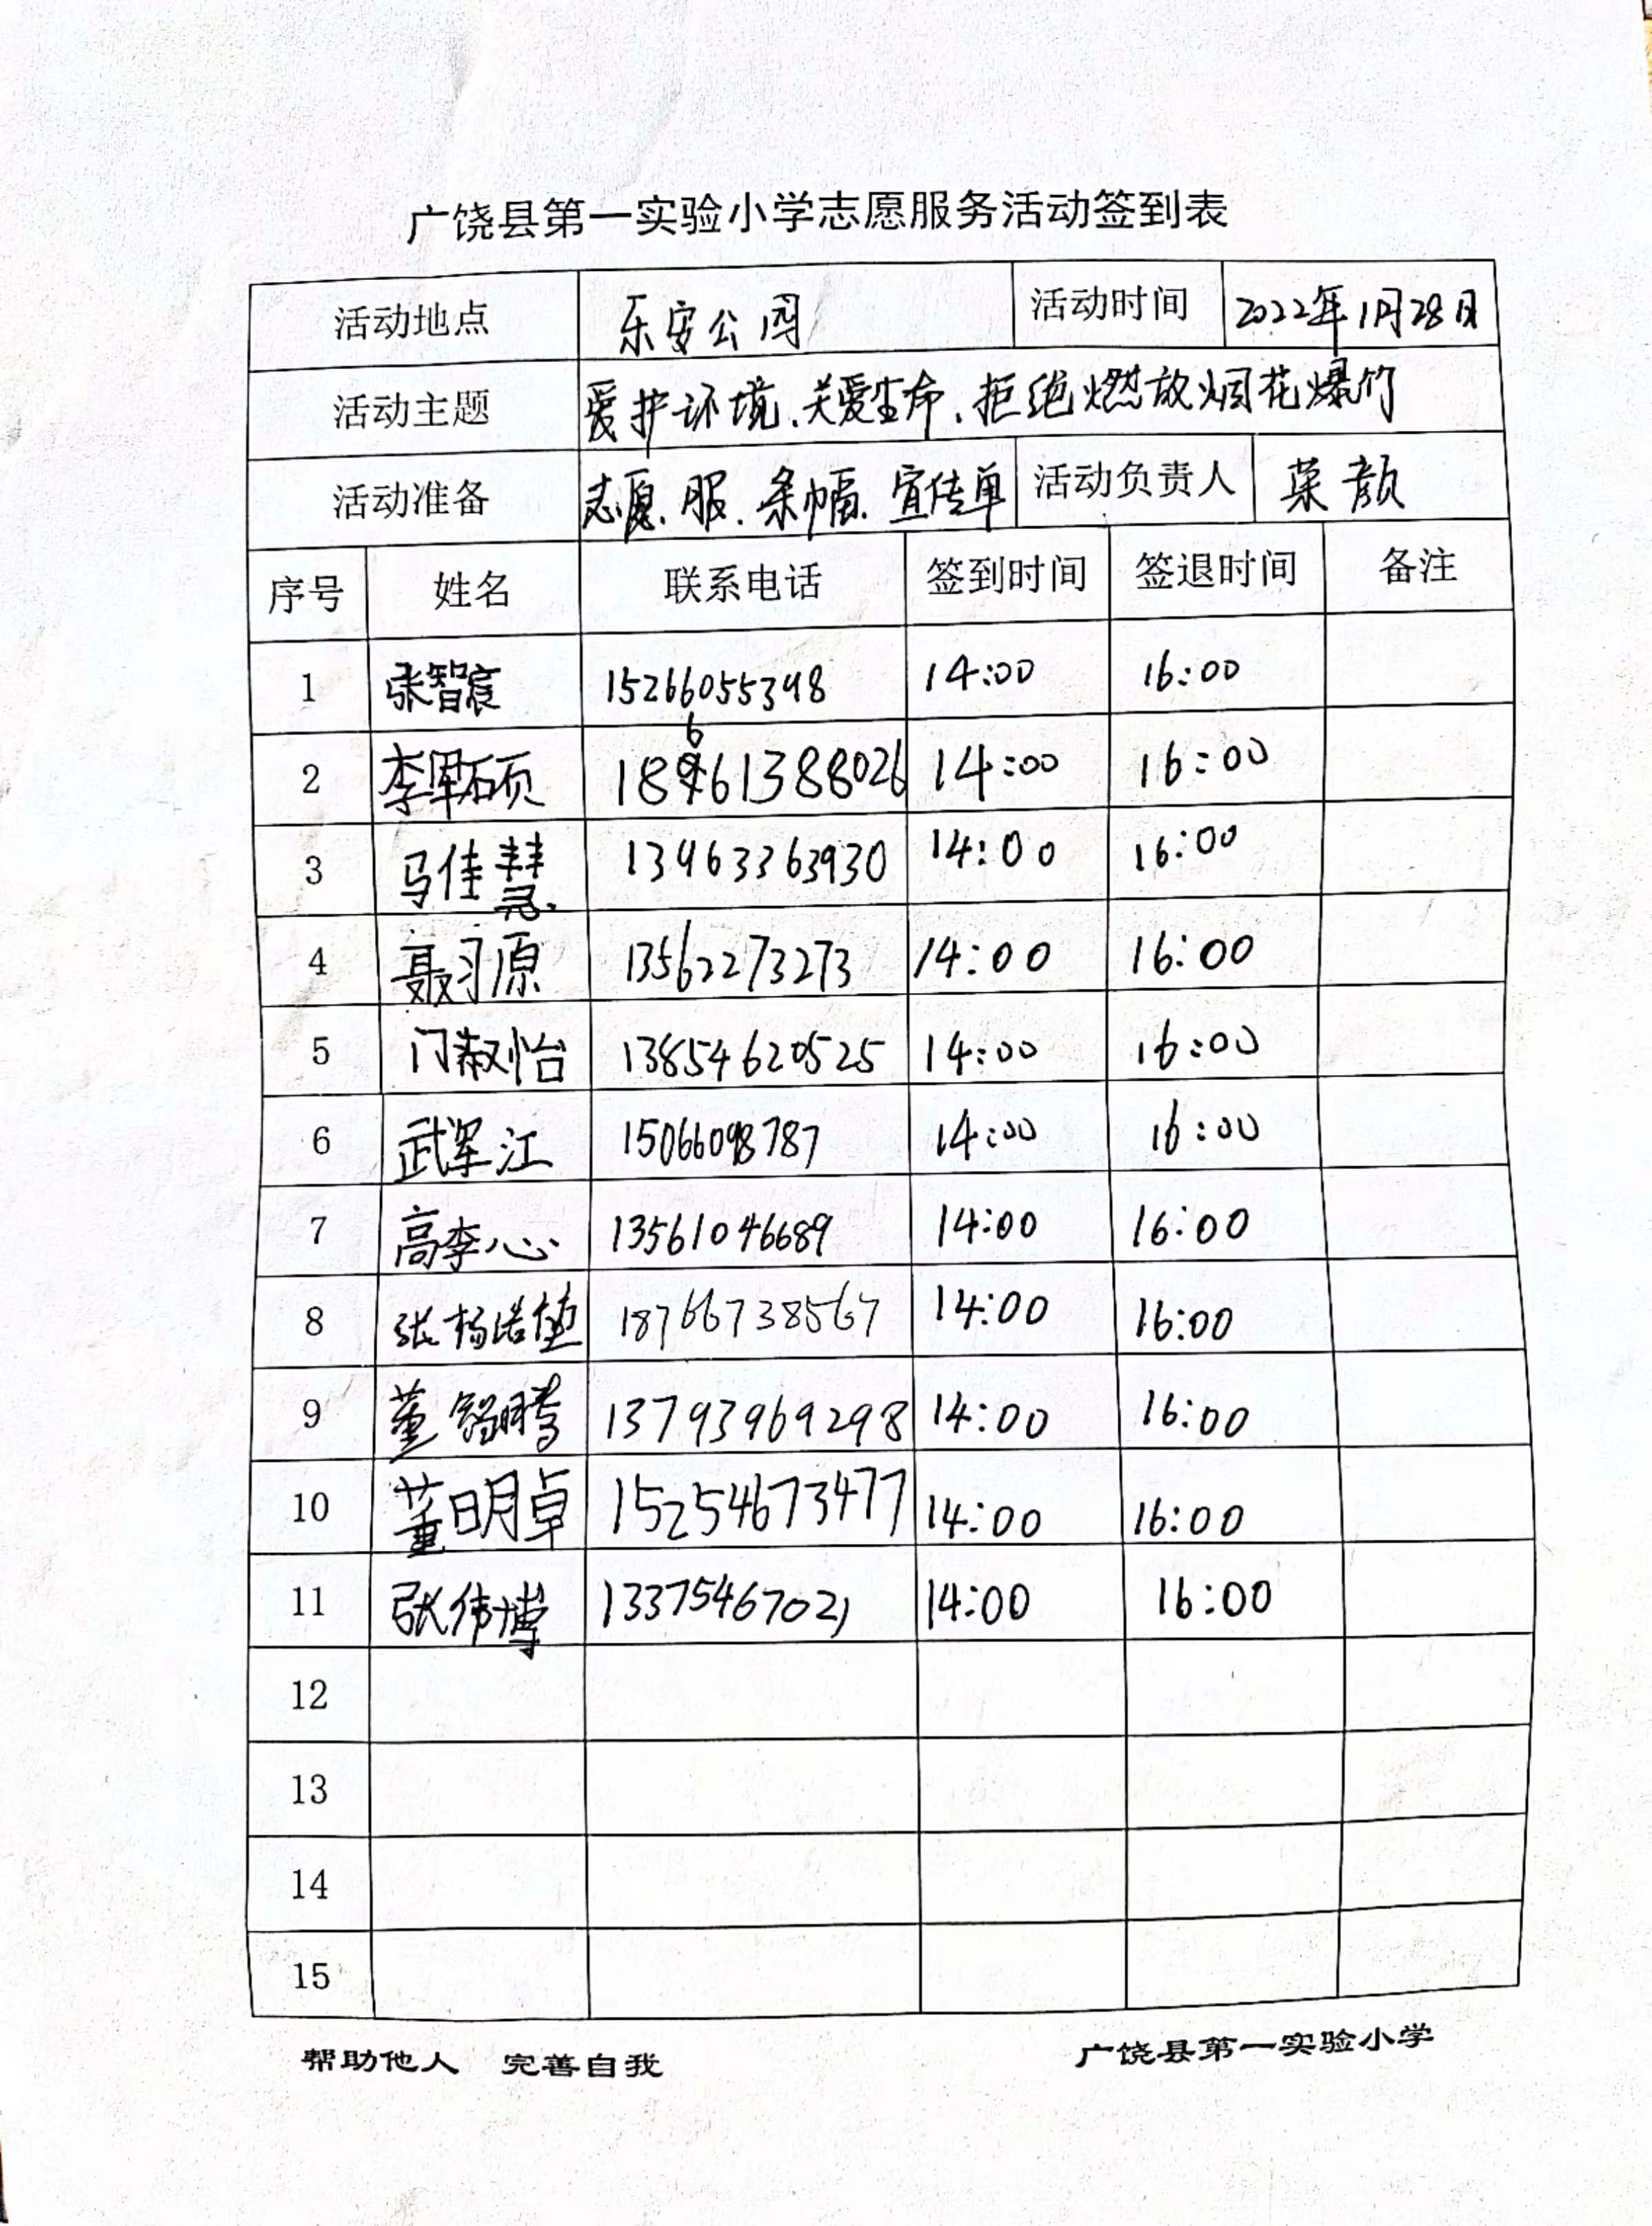 广饶县第一实验小学志愿服务活动签到表
活动地点 乐安公园 活动时间 2022年1月28日
活动主题 爱护环境、关爱生命、拒绝燃放烟花爆竹
活动准备 志愿服、条幅、宣传单 活动负责人 荣颜
序号 姓名 联系电话 签到时间 签退时间 备注
1 张智宸 15266055398 14:00 16:00
2 李军硕 18661388026 14:00 16:00
3 马佳慧 13963363930 14:00 16:00
4 聂习原 13562273273 14:00 16:00
5 门淑怡 13854620525 14:00 16:00
6 武军江 15066098787 14:00 16:00
7 高李心 13561046689 14:00 16:00
8 张杨诺 18766738567 14:00 16:00
9 董腾 13793969298 14:00 16:00
10 董明卓 15254673477 14:00 16:00
11 张伟博 13375467021 14:00 16:00
12
13
14
15
帮助他人 完善自我 广饶县第一实验小学